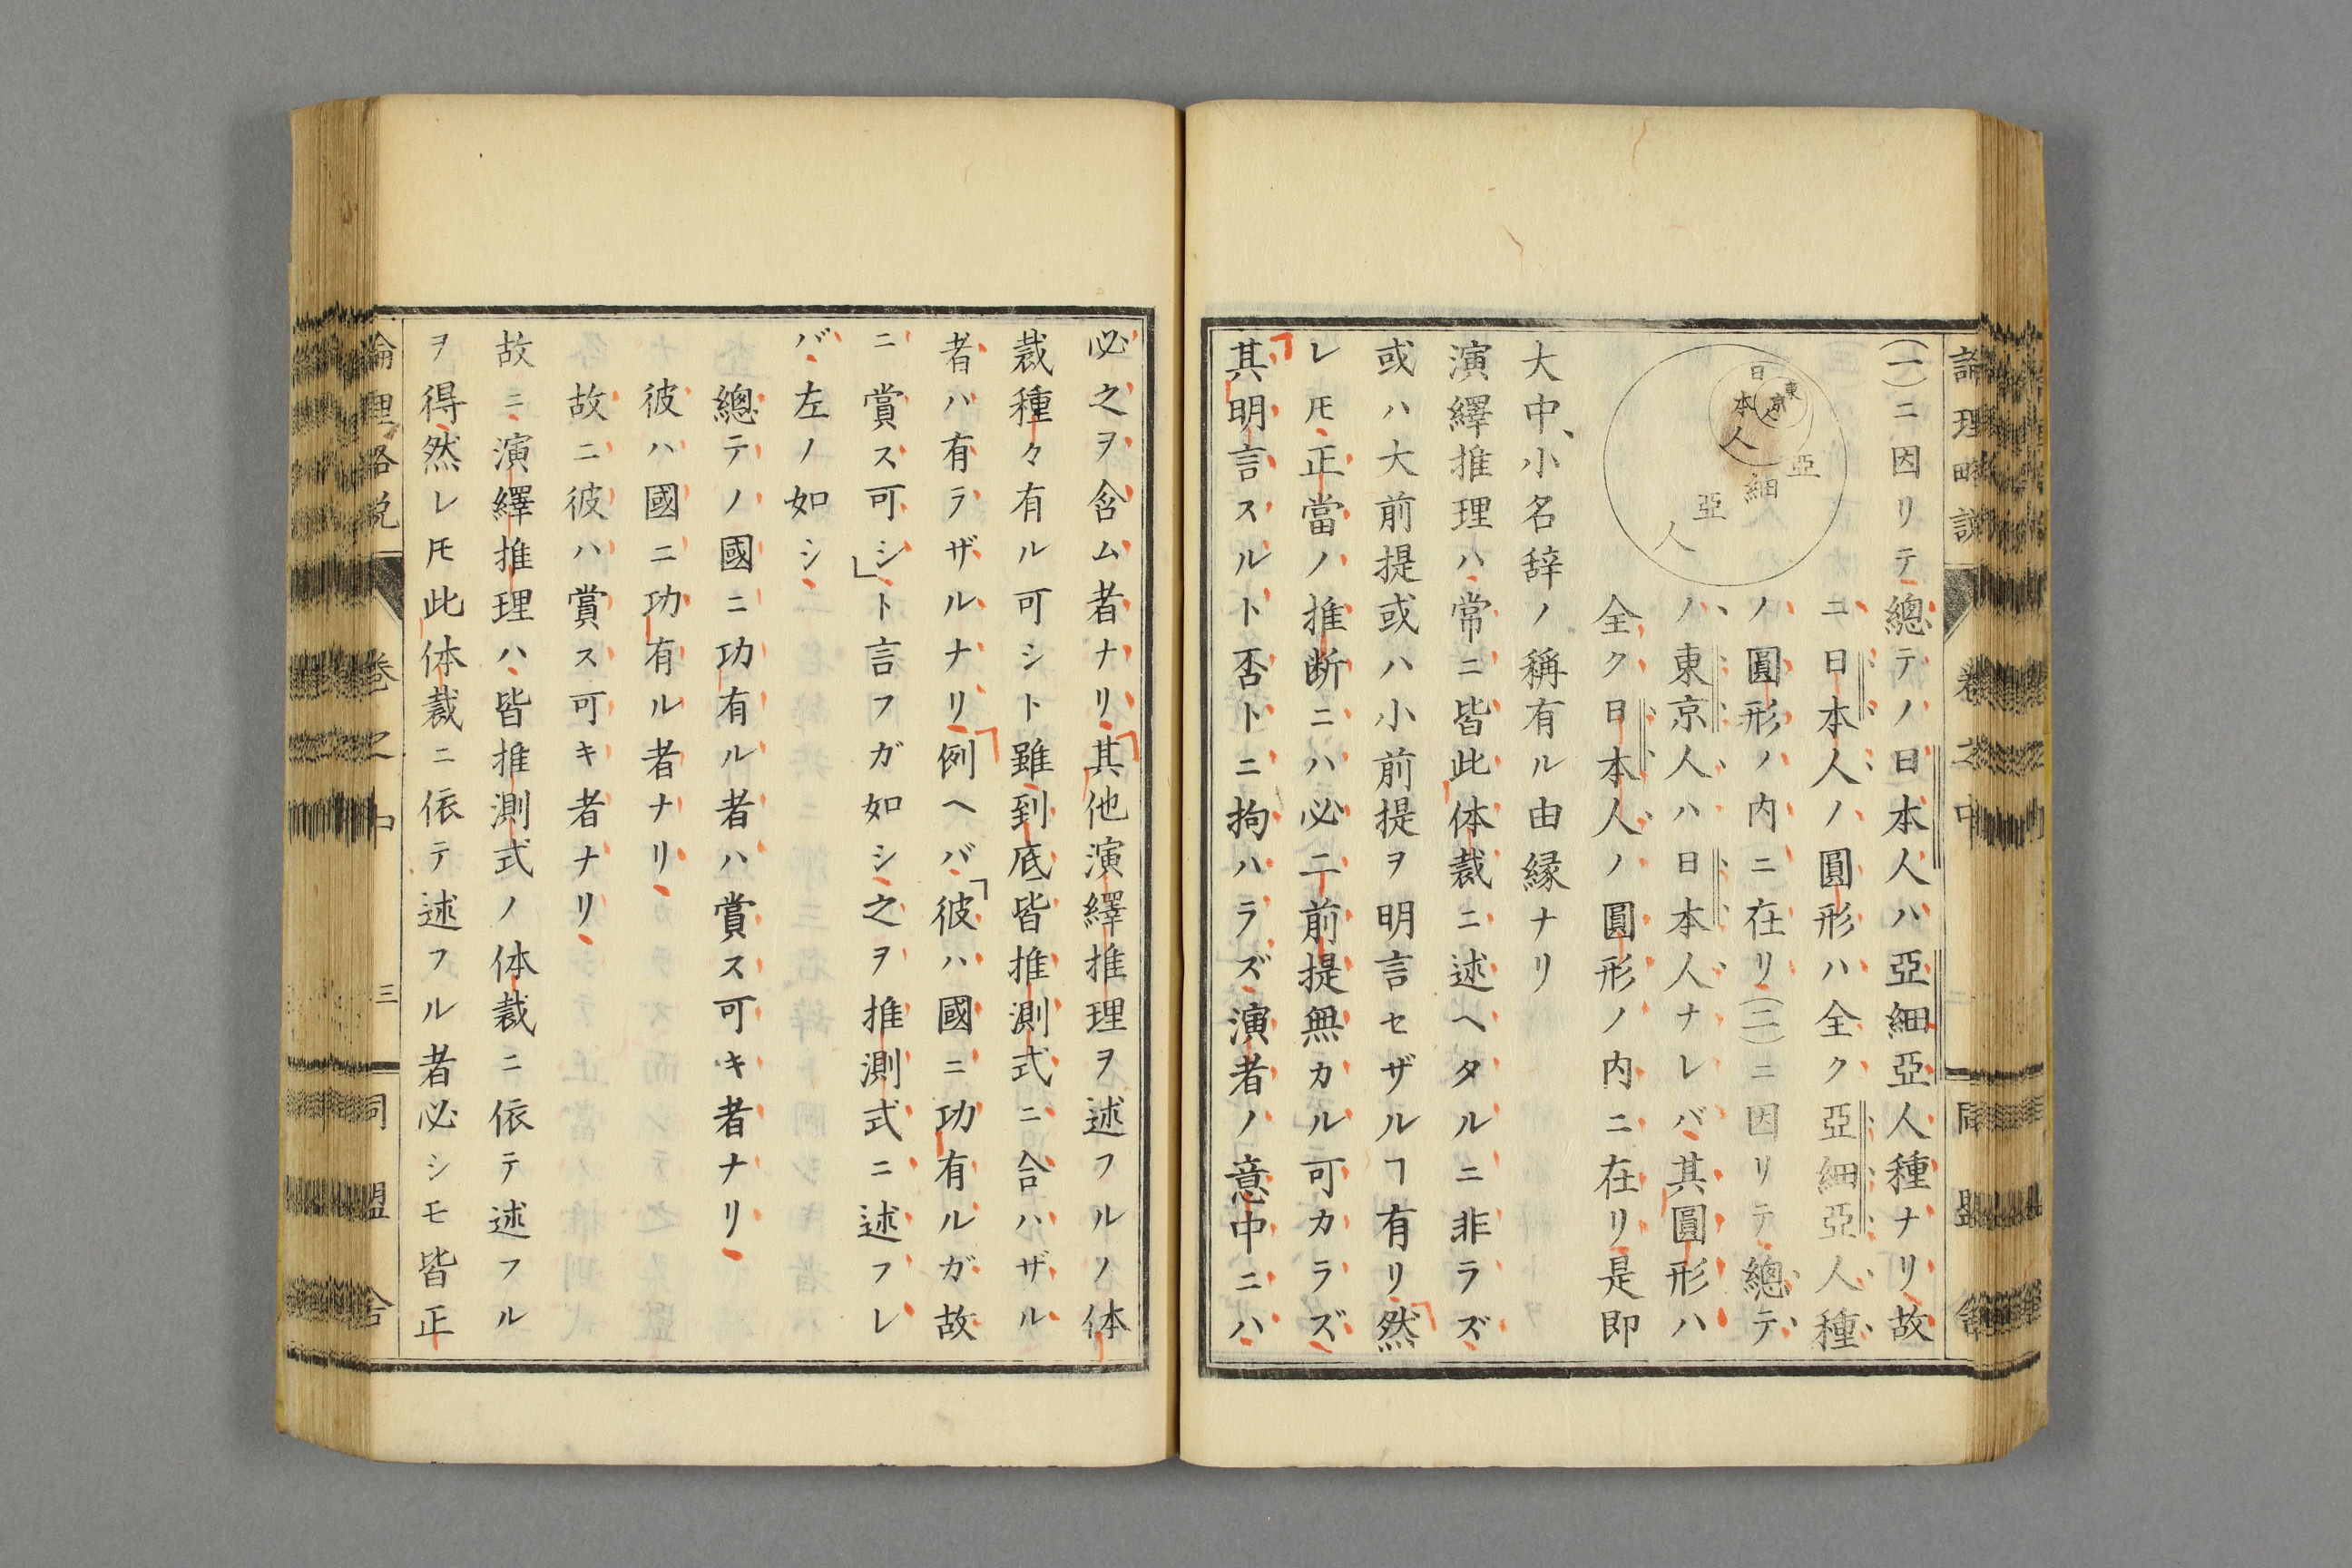 論理略説 卷之中 同盟舎
(一)ニ因リテ總テノ日本人ハ亞細亞人種ナリ故
ニ日本人ノ圓形ハ全ク亞細亞人種
ノ圓形ノ内ニ在リ(二)ニ因リテ總テ
ノ東京人ハ日本人ナレバ其圓形ハ
全ク日本人ノ圓形ノ内ニ在リ是即
東京人
日本人
亞細亞人
大中小名辞ノ稱有ル由縁ナリ
演繹推理ハ常ニ皆此体裁ニ述ヘタルニ非ラズ
或ハ大前提或ハ小前提ヲ明言セザルヿ有リ然
レ𪜈正當ノ推断ニハ必二前提無カル可カラズ
其明言スルト否トニ拘ハラズ演者ノ意中ニハ
必之ヲ含ム者ナリ其他演繹推理ヲ述フルノ体
裁種々有ル可シト雖到底皆推測式ニ合ハザル
者ハ有ラザルナリ例ヘバ「彼ハ國ニ功有ルガ故
ニ賞ス可シ」ト言フガ如シ之ヲ推測式ニ述フレ
バ左ノ如シ
總テノ國ニ功有ル者ハ賞ス可キ者ナリ
彼ハ國ニ功有ル者ナリ
故ニ彼ハ賞ス可キ者ナリ
故ニ演繹推理ハ皆推測式ノ体裁ニ依テ述フル
ヲ得然レ𪜈此体裁ニ依テ述フル者必シモ皆正
論理略説 卷之中 三 同盟舎